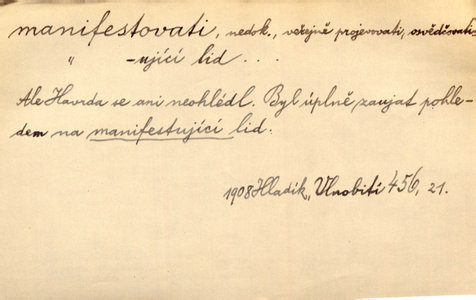 manifestovati, nedok., veřejně projevovati, osvědčovati
„ -ující lid . . .
Ale Havrda se ani neohlédl. Byl úplně zaujat pohle-
dem na manifestující lid.
1908 Hladík, Vlnobití 456, 21.